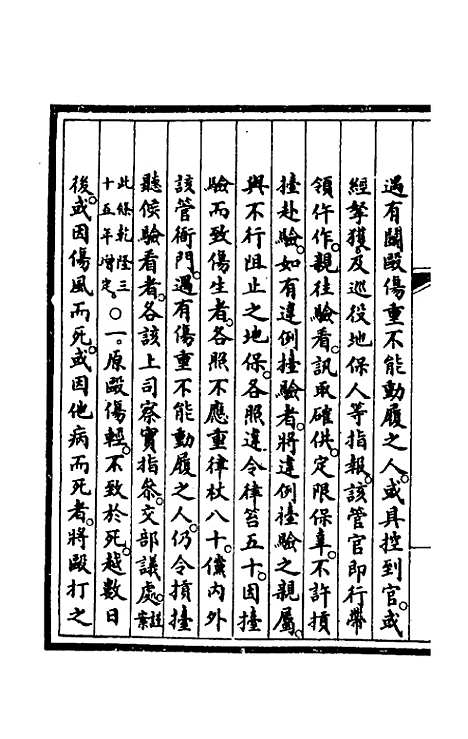 遇有鬬毆傷重不能動履之人。或具控到官。或
經拏獲。及巡役地保人等指報。該管官即行帶
領仵作。親往驗看。訊取確供。定限保辜。不許擡
擡赴驗。如有違例擡驗者。將違例擡驗之親屬。
與不行阻止之地保。各照違令律笞五十。因擡
驗而致傷生者。各照不應重律杖八十。儻內外
該管衙門。遇有傷重不能動履之人。仍令擡
聽候驗看者。各該上司察實指叅。交部議處。謹案
此條乾隆三十五年增定。○一。原毆傷輕。不致於死。越數日
後。或因傷風而死。或因他病而死者。將毆打之